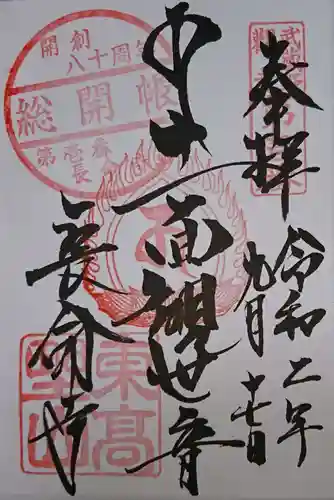 奉拝
令和二年
九月十七日
十一面観世音
長命寺
開創
八十周年
総開帳
第壱番
長
東高
野山